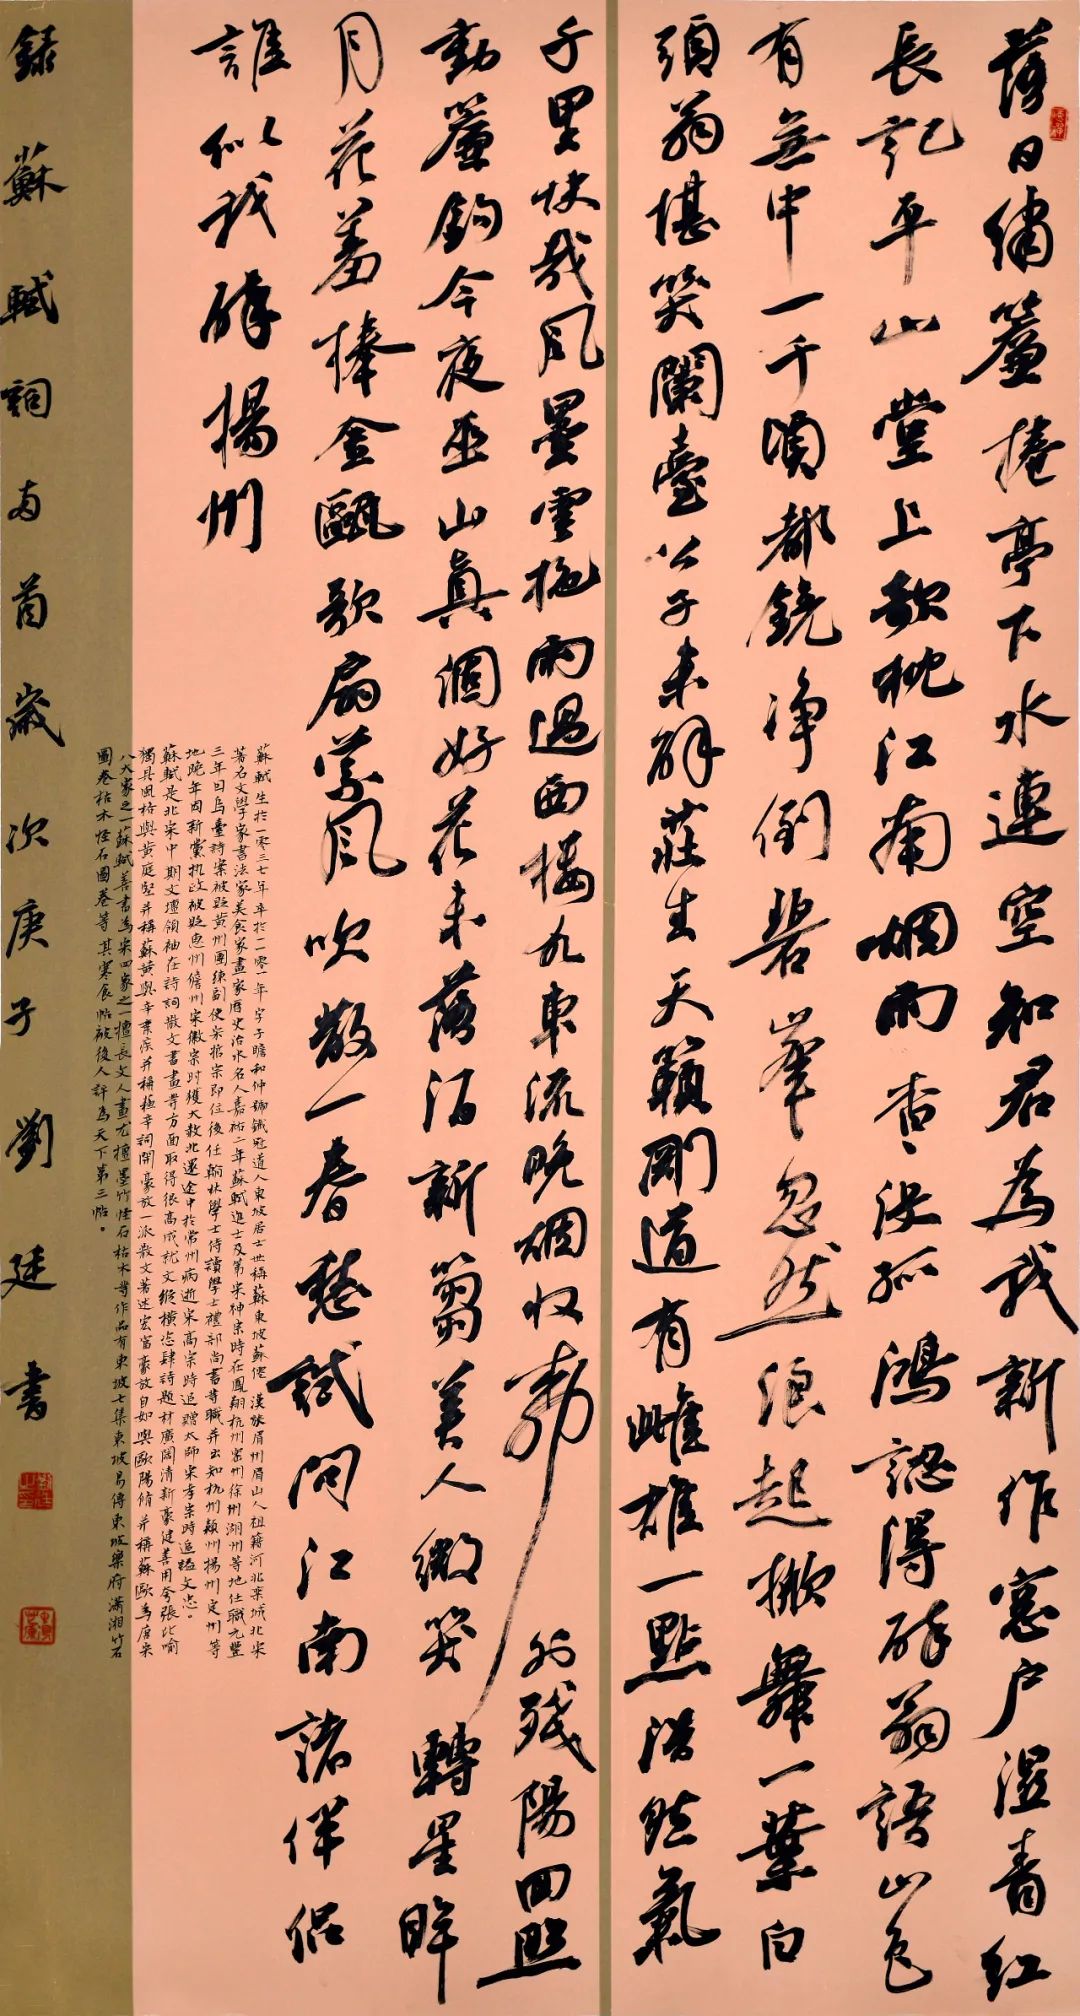 落日繡簾捲亭下水連空知君為我新作窓户濕青紅
長記平山堂上欹枕江南烟雨杳〻沒孤鴻認得醉翁語山色
有無中一千頃都鏡淨倒碧峯忽然浪起掀舞一葉白
頭翁堪笑蘭臺公子未解莊生天籟剛道有雌雄一點浩然氣
千里快哉風墨雲拖雨過西樓水東流晚烟收柳外殘陽回照
動簾鉤今夜巫山真個好花未落酒新篘美人微笑轉星眸
月花羞捧金甌歌扇縈風吹散一春愁試問江南諸伴侶
誰似我醉揚州
蘇軾生於一零三七年卒於一一零一年字子瞻和仲號鐵冠道人東坡居士世稱蘇東坡蘇僊漢族眉州眉山人祖籍河北欒城北宋
著名文學家書法家美食家畫家歷史治水名人嘉祐二年蘇軾進士及第宋神宗時在鳳翔杭州密州徐州湖州等地任職元豐
三年因烏臺詩案被貶黃州團練副使宋哲宗即位後任翰林學士侍讀學士禮部尚書等職并出知杭州穎州揚州定州等
地晚年因新黨執政被貶惠州儋州宋徽宗時獲大赦北還途中於常州病逝宋高宗時追贈太師宋孝宗時追謚文忠。
蘇軾是北宋中期文壇領袖在詩詞散文書畫等方面取得很高成就文縱橫恣肆詩題材廣闊清新豪健善用夸張比喻
獨具風格與黃庭堅并稱蘇黃與辛棄疾并稱蘇辛詞開豪放一派散文著述宏富豪放自如與歐陽脩并稱蘇歐為唐宋
八大家之一蘇軾善書為宋四家之一擅長文人畫尤擅墨竹怪石枯木等作品有東坡七集東坡易傳東坡樂府瀟湘竹石
圖卷枯木怪石圖卷等其寒食帖被後人評為天下第三帖。
錄蘇軾詞两首歲次庚子劉廷書